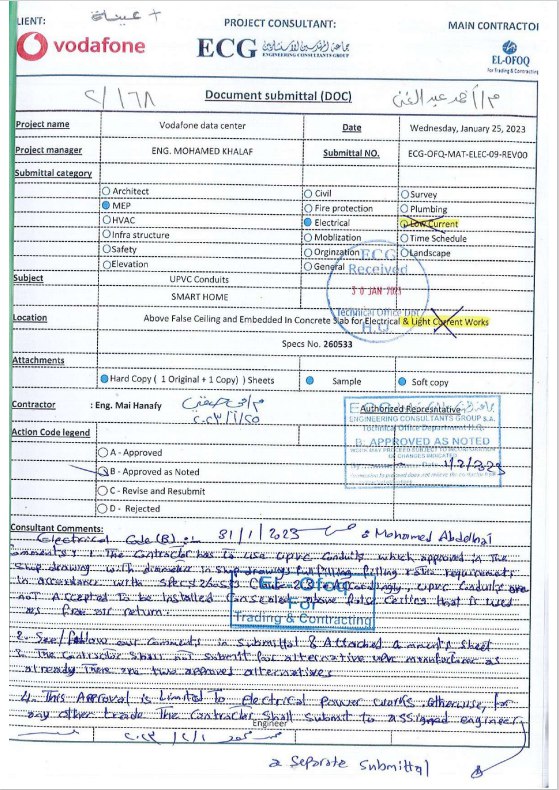 LIENT:
PROJECT CONSULTANT:
MAIN CONTRACTOR
vodafone
ECG
جماعة المهندسين الاستشاريين
ENGINEERING CONSULTANTS GROUP
EL-OFOQ
For Trading & Contracting
Document submittal (DOC)
٢/١٦٨
م/أحمد عبد الغني
Project name
Vodafone data center
Date
Wednesday, January 25, 2023
Project manager
ENG. MOHAMED KHALAF
Submittal NO.
ECG-OFQ-MAT-ELEC-09-REV00
Submittal category
Architect
Civil
Survey
MEP
Fire protection
Plumbing
HVAC
Electrical
Low Current
Infra structure
Moblization
Time Schedule
Safety
Orginzation
Landscape
Elevation
General
ECG
Received
30 JAN 2023
Technical Office Dep.
H.Q
Subject
UPVC Conduits
SMART HOME
Location
Above False Ceiling and Embedded In Concrete Slab for Electrical & Light Current Works
Specs No. 260533
Attachments
Hard Copy ( 1 Original + 1 Copy) ) Sheets
Sample
Soft copy
Contractor
: Eng. Mai Hanafy
Authorized Represntative
ENGINEERING CONSULTANTS GROUP S.A.
Technical Office Department H.Q.
B: APPROVED AS NOTED
1/2/2023
Action Code legend
A - Approved
B - Approved as Noted
C - Revise and Resubmit
D - Rejected
Consultant Comments:
Electrical Code (B) 31/1/2023 Mohamed Abdelhai
Comments: 1. The Contractor has to use UPVC Conduits which approved in the
shop drawing with diameter in shop drawings fulfilling filling ratio requirements
in accordance with specs Accordingly, UPVC Conduits are
not Accepted to be installed above false Ceiling that is used
as for air return.
EL-Ofoq
For
Trading & Contracting
2. See/follow our Comments in submittal & Attached Comments sheet
3. The Contractor shall not submit for alternative upvc manufacturer as
already there are two approved alternatives
4. This Approval is Limited to Electrical power works. otherwise, for
any other trade The Contractor shall submit to assigned engineer
Engineer
a separate submittal